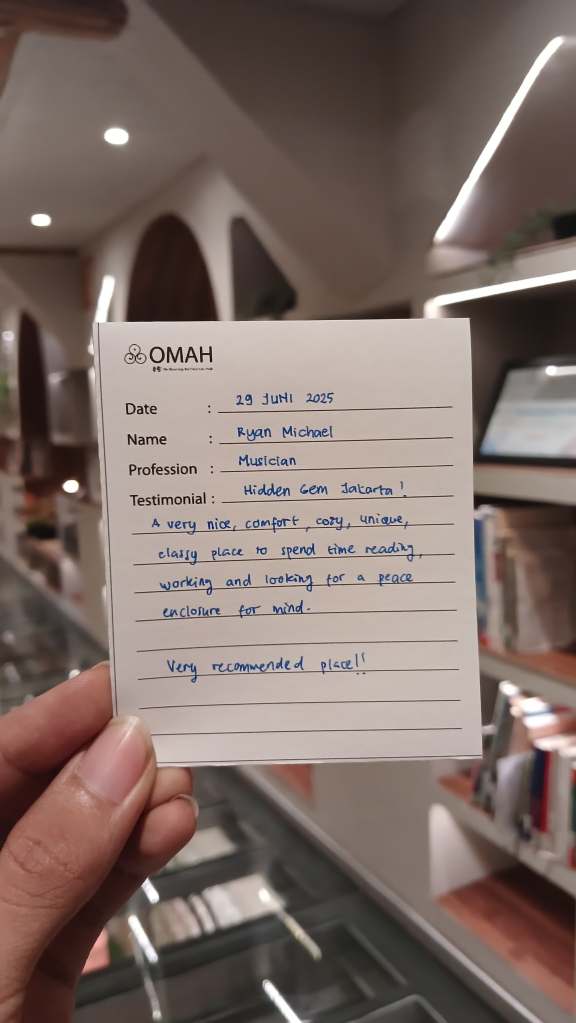 OMAH
Date : 29 JUNI 2025
Name : Ryan Michael
Profession : Musician
Testimonial : Hidden Gem Jakarta!
A very nice, comfort, cozy, unique,
classy place to spend time reading,
working and looking for a peace
enclosure for mind.
Very recommended place!!